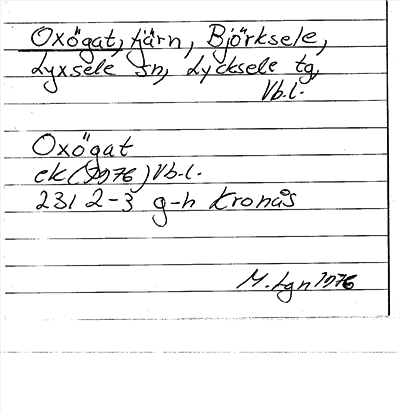 Oxögat, tjärn, Björksele,
Lyxsele sn, Lycksele tg,
Vb.l.
Oxögat
ek (1976) Vb.l.
231 2-3 g-h Kronås
M. Lgn 1976